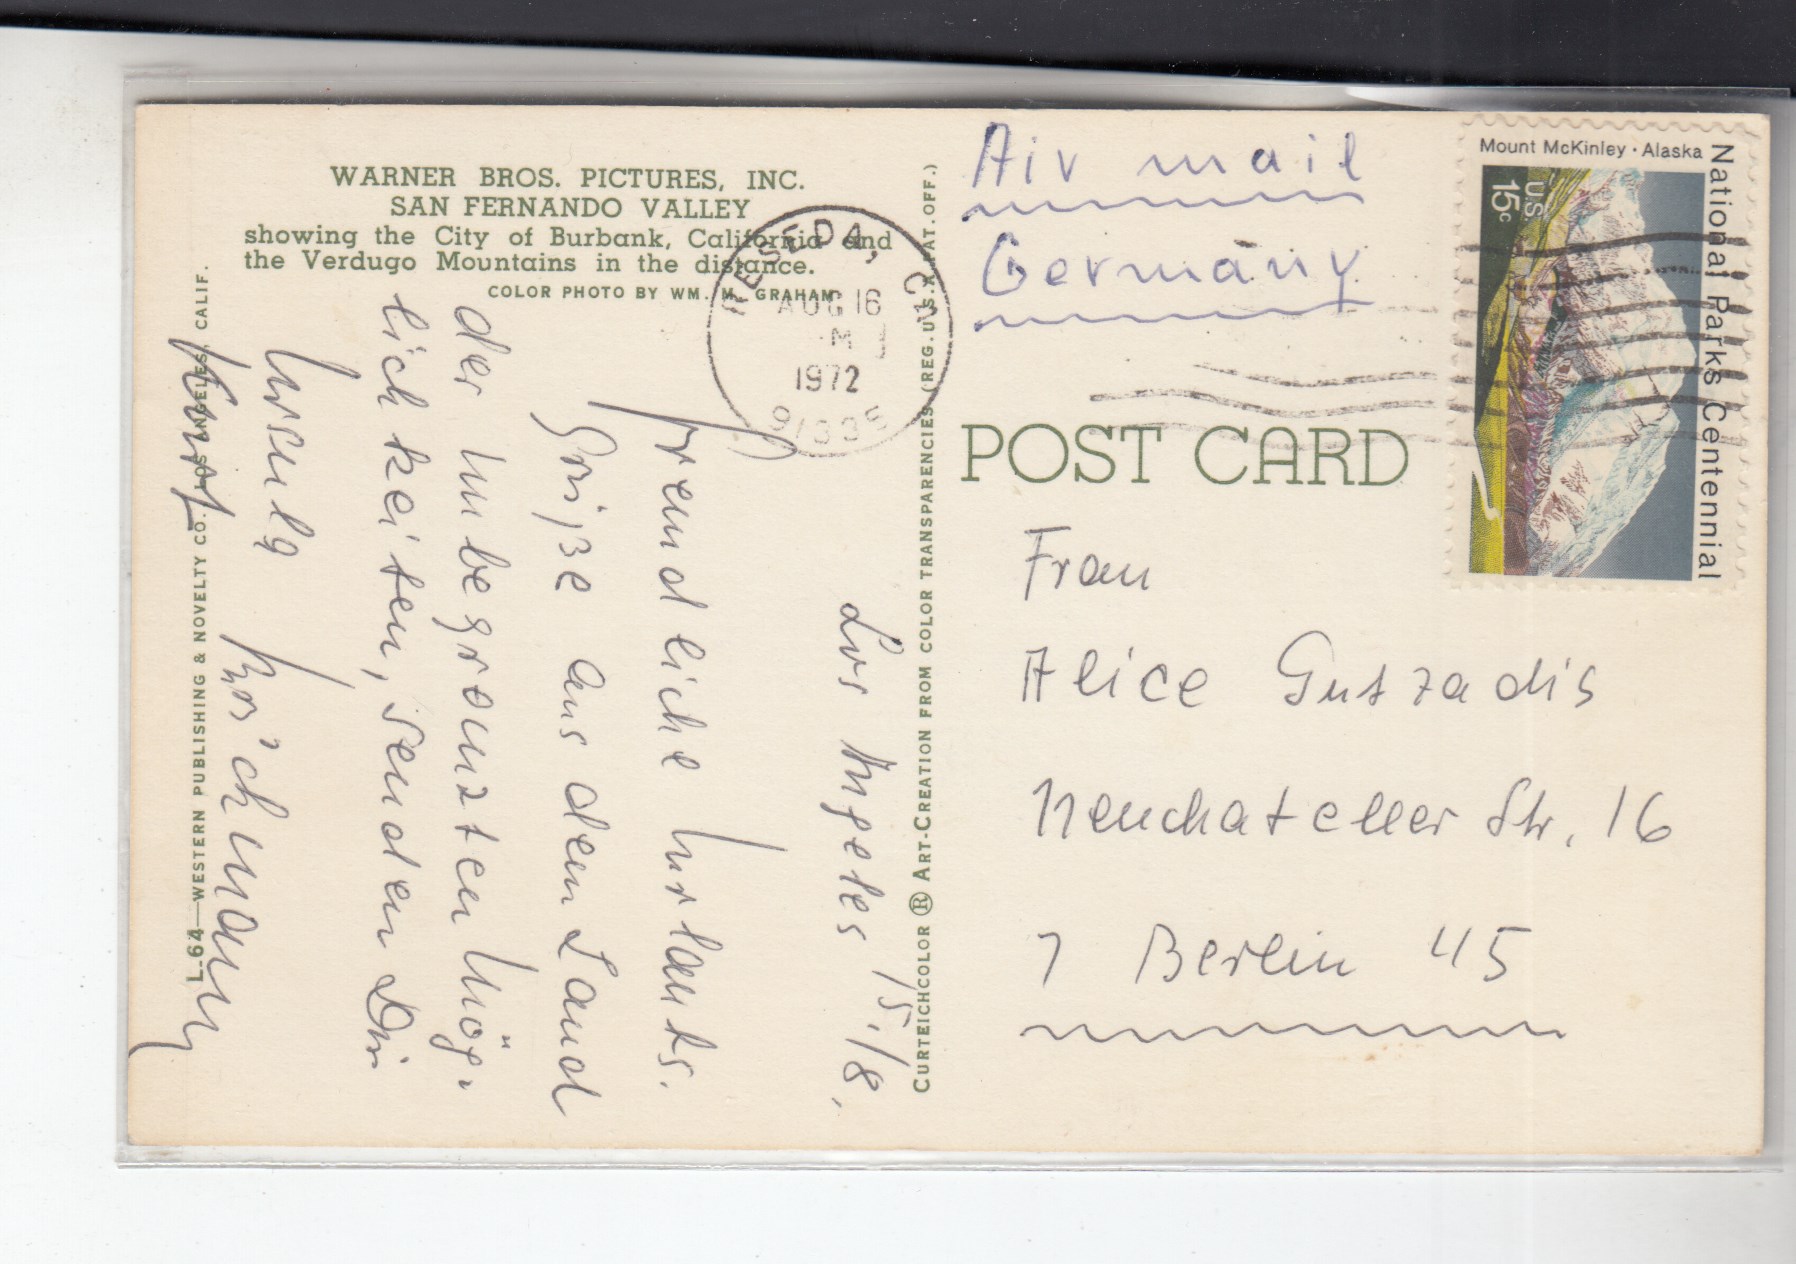 WARNER BROS. PICTURES, INC.
SAN FERNANDO VALLEY
showing the City of Burbank, California and
the Verdugo Mountains in the distance.
COLOR PHOTO BY WM. M. GRAHAM
L-64—WESTERN PUBLISHING & NOVELTY CO. LOS ANGELES, CALIF.
Los Angeles 15./8.
Freundliche Urlaubs.
Grüße aus dem Land
der unbegrenzten Mög-
lichkeiten, senden Dir
Ursula
Kurt
CURTEICHCOLOR ® ART-CREATION FROM COLOR TRANSPARENCIES (REG. U.S.A. PAT. OFF.)
RESEDA, C
AUG 16
M
1972
91335
Air mail
Germany
POST CARD
Mount McKinley · Alaska
National Parks Centennial
U.S.
15c
Frau
Alice Gutzadis
Neuchateller Str. 16
1 Berlin 45